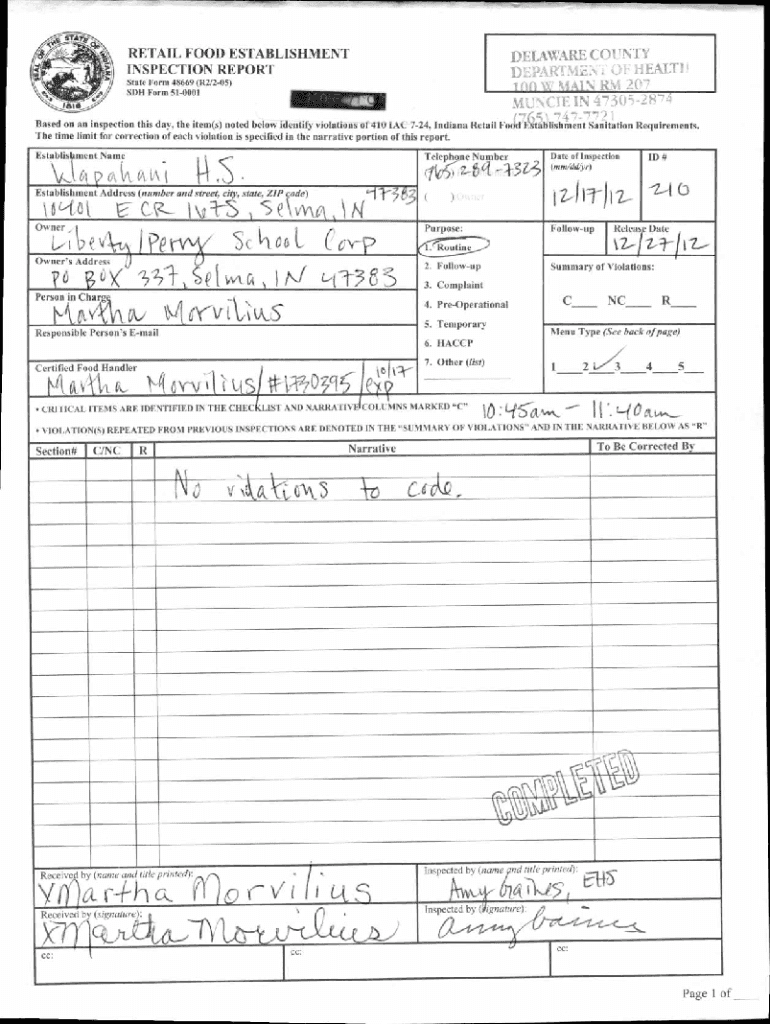 SEAL OF THE STATE OF INDIANA
1816
RETAIL FOOD ESTABLISHMENT
INSPECTION REPORT
State Form 48669 (R2/2-05)
SDH Form 51-0001
DELAWARE COUNTY
DEPARTMENT OF HEALTH
100 W MAIN RM 207
MUNCIE IN 47305-2874
(765) 747-7721
Based on an inspection this day, the item(s) noted below identify violations of 410 IAC 7-24, Indiana Retail Food Establishment Sanitation Requirements.
The time limit for correction of each violation is specified in the narrative portion of this report.
Establishment Name
Wapahani H.S.
Telephone Number
765-289-7323
Date of Inspection
(mm/dd/yr)
12/17/12
ID #
210
Establishment Address (number and street, city, state, ZIP code)
47383
10401 E CR 167S, Selma, IN
( ) Owner
Owner
Liberty/Perry School Corp
Purpose:
1. Routine
Follow-up
Release Date
12/27/12
Owner's Address
PO BOX 337, Selma, IN 47383
2. Follow-up
3. Complaint
Summary of Violations:
C____ NC____ R____
Person in Charge
Martha Morvilius
4. Pre-Operational
5. Temporary
Responsible Person's E-mail
6. HACCP
Menu Type (See back of page)
1____2 ✓ 3____4____5____
Certified Food Handler
Martha Morvilius/#1730395/exp 10/17
7. Other (list)
• CRITICAL ITEMS ARE IDENTIFIED IN THE CHECKLIST AND NARRATIVE COLUMNS MARKED "C"
10:45am - 11:40am
• VIOLATION(S) REPEATED FROM PREVIOUS INSPECTIONS ARE DENOTED IN THE "SUMMARY OF VIOLATIONS" AND IN THE NARRATIVE BELOW AS "R"
Section# C/NC R Narrative To Be Corrected By
No violations to code.
COMPLETED
Received by (name and title printed):
X Martha Morvilius
Inspected by (name and title printed):
Amy Gaines, EHS
Received by (signature):
X Martha Morvilius
Inspected by (signature):
Amy Gaines
cc:
cc:
cc:
Page 1 of ____